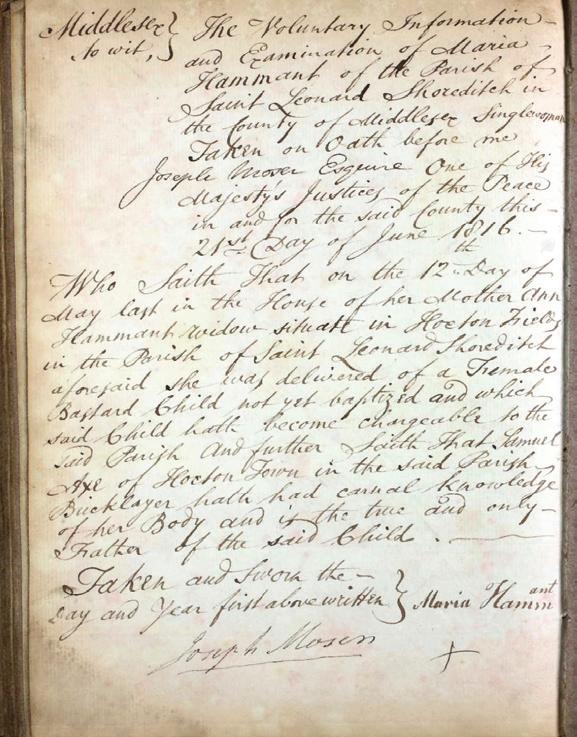 Middlesex } The Voluntary Information
to wit, and Examination of Maria
Hammant of the Parish of
Saint Leonard Shoreditch in
the County of Middlesex Singlewoman
Taken on Oath before me
Joseph Moser Esquire One of His
Majesty's Justices of the Peace
in and for the said County this
21st Day of June 1816.
Who Saith That on the 12th Day of
May last in the House of her Mother Ann
Hammant widow situate in Hoxton Fields
in the Parish of Saint Leonard Shoreditch
aforesaid she was delivered of a Female
Bastard Child not yet baptized and which
said Child hath become chargeable to the
said Parish And further Saith That Samuel
Axe of Hoxton Town in the said Parish
Bricklayer hath had carnal Knowledge
of her Body and is the true and only
Father of the said Child.
Taken and Sworn the
Day and Year first above written } Maria Hammant
Joseph Moser